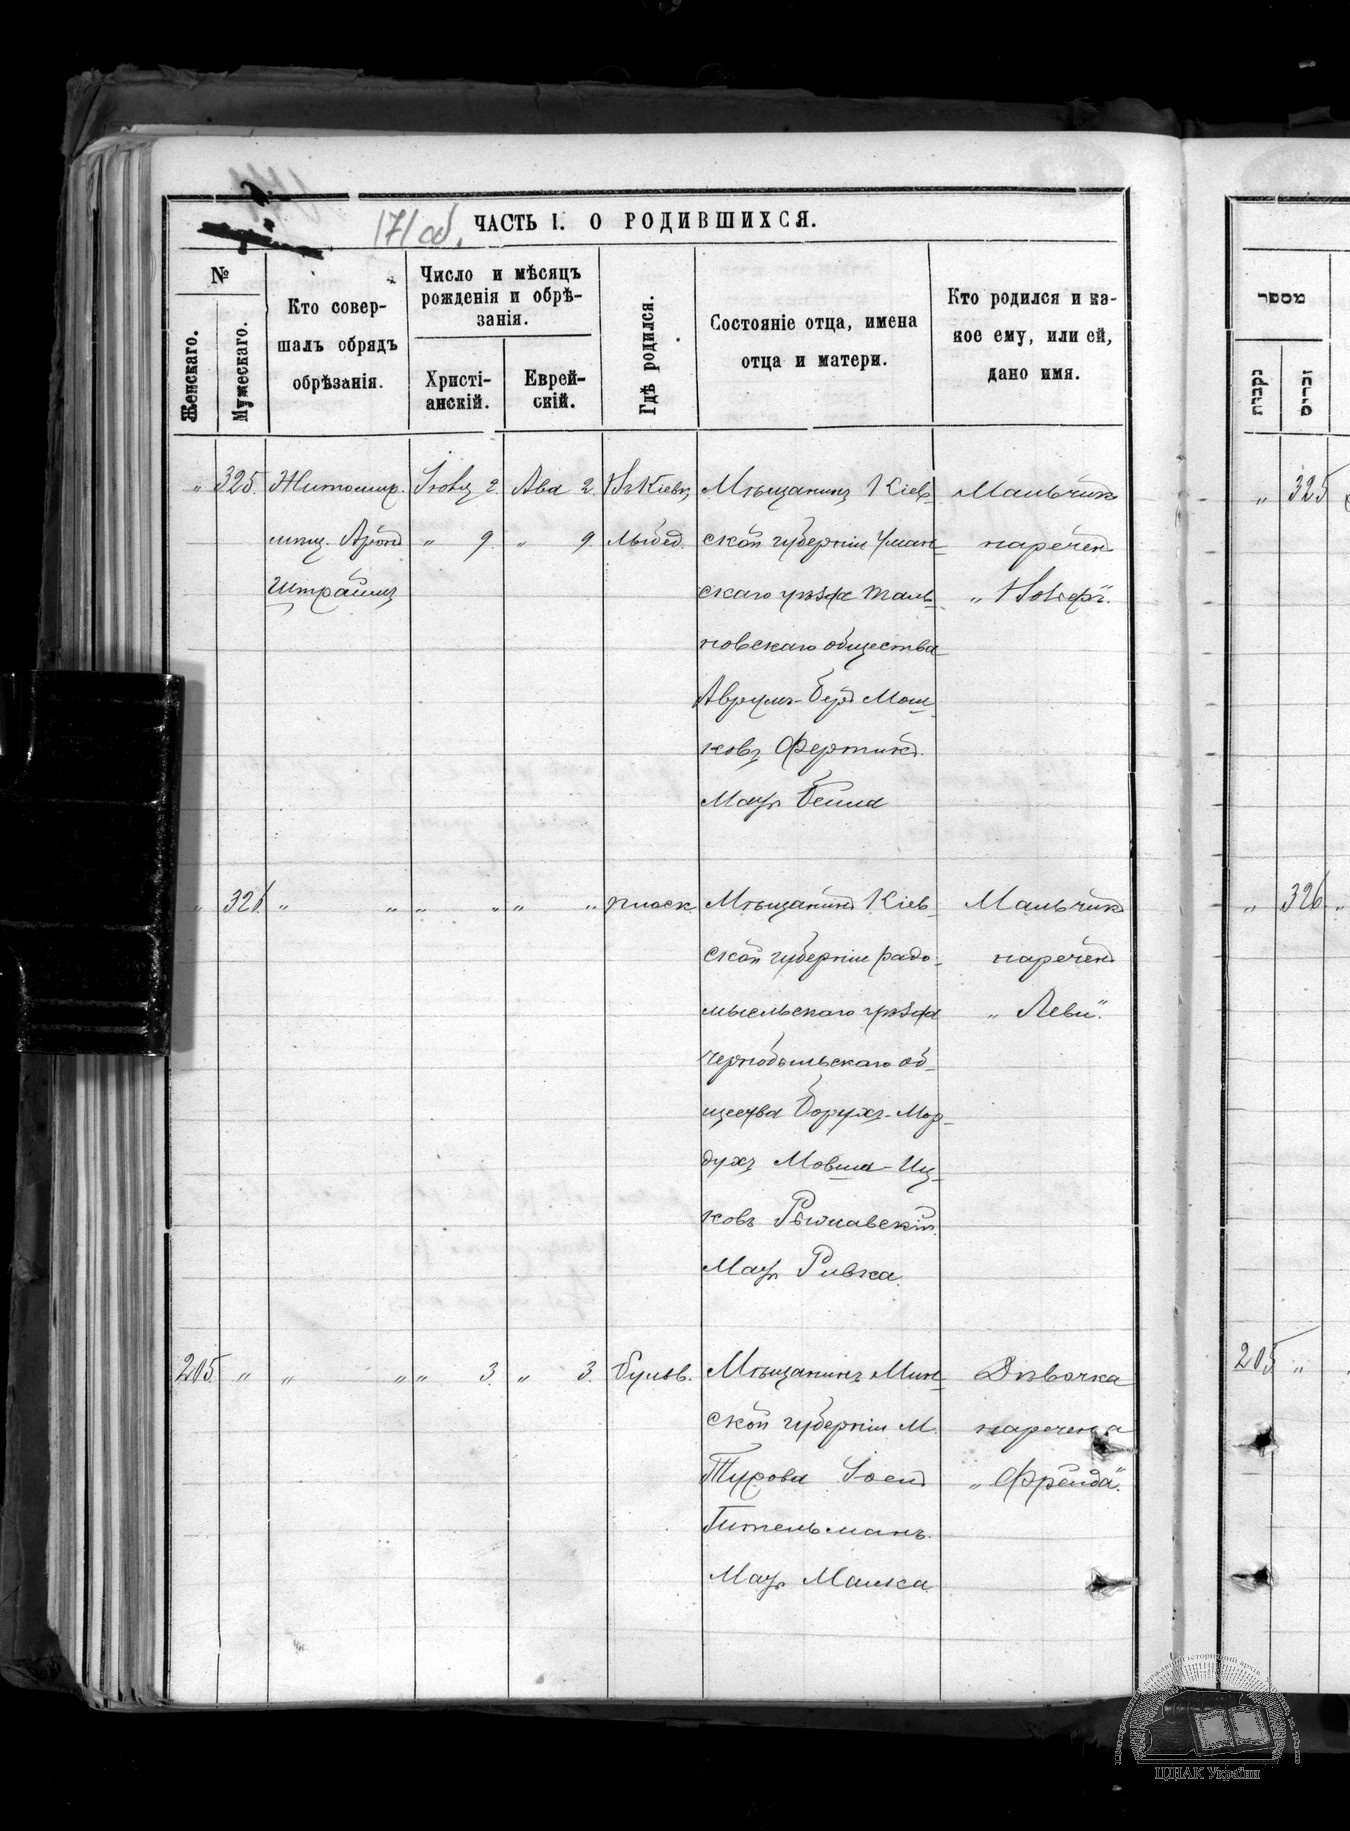 171 об.
ЧАСТЬ I. О РОДИВШИХСЯ.
№
Женскаго.
Мужескаго.
Кто совер-
шалъ обрядъ
обрѣзанія.
Число и мѣсяцъ
рожденія и обрѣ-
занія.
Христі-
анскій.
Еврей-
скій.
Гдѣ родился.
Состояніе отца, имена
отца и матери.
Кто родился и ка-
кое ему, или ей,
дано имя.
„ 325. Житомир. 2 Ава 2. Мѣщанинъ Кіев-
мѣщ. Аронъ „ 9. „ 9. Лыбед. ской губерніи Уман-
Штраймъ скаго уѣзда Таль-
новскаго общества
Аврумъ-Беръ Мош-
ковъ Фертикъ.
Мать Бейла
Мальчикъ
нареченъ
„Іосифъ“.
„ 326. „ „ „ „ „ „ плоск. Мѣщанинъ Кіев-
ской губерніи Радо-
мысльскаго уѣзда
Чернобыльскаго об-
щества Борухъ-Мор-
духъ Мовша-Иц-
ковъ
Мать Ривка.
Мальчикъ
нареченъ
„Леви“.
205 „ „ „ „ 3. „ 3. бульв. Мѣщанинъ Мин-
ской губерніи М.
Турова Іосель
Гительманъ.
Мать Малка
Дѣвочка
наречена
„Фрейда“.
מספר
נקבות
זכרים
„ 325
„ 326 „
205 „
ЦДІАК України